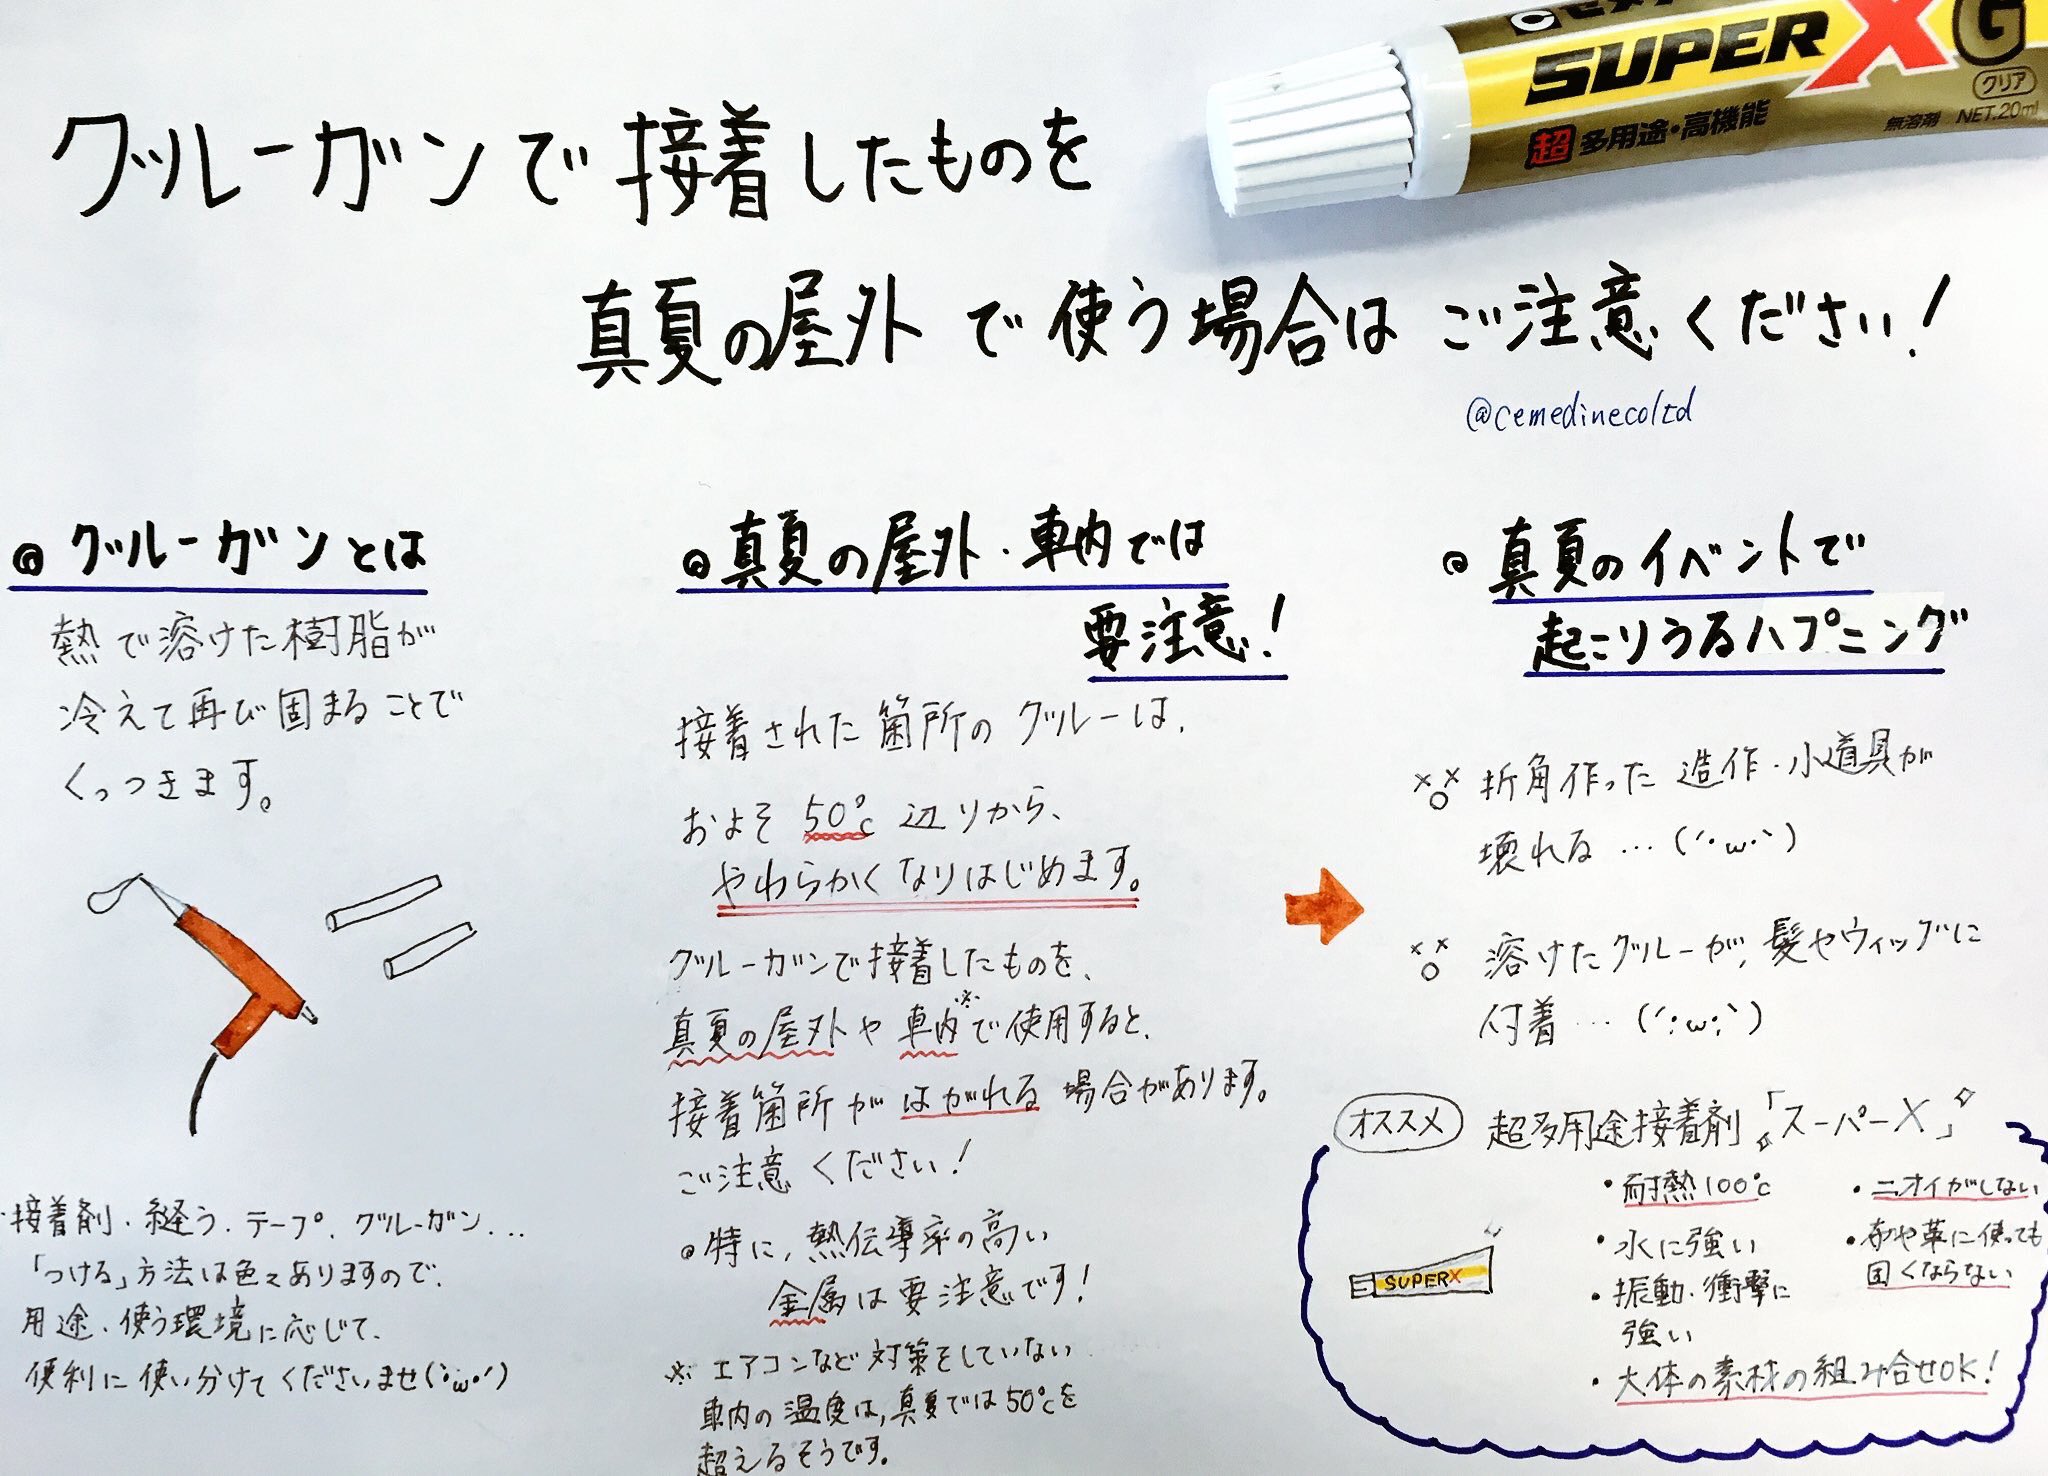 セメダイン
SUPER X G
クリア
超 多用途・高機能
無溶剤 NET.20ml
グルーガンで接着したものを
真夏の屋外で使う場合はご注意ください!
@cemedinecoltd
◎グルーガンとは
熱で溶けた樹脂が
冷えて再び固まることで
くっつきます。
接着剤・縫う・テープ、グルーガン...
「つける」方法は色々ありますので、
用途・使う環境に応じて、
便利に使い分けてくださいませ(・ω・´)
◎真夏の屋外・車内では
要注意!
接着された箇所のグルーは、
およそ50℃辺りから、
やわらかくなりはじめます。
グルーガンで接着したものを、
真夏の屋外や車内※で使用すると、
接着箇所がはがれる場合があります。
ご注意ください!
◎特に、熱伝導率の高い
金属は要注意です!
※エアコンなど対策をしていない
車内の温度は、真夏では50℃を
超えるそうです。
◎真夏のイベントで
起こりうるハプニング
折角作った造作・小道具が
壊れる...(´・ω・`)
溶けたグルーが、髪やウィッグに
付着...(´;ω;`)
オススメ 超多用途接着剤「スーパーX」
・耐熱100℃
・水に強い
・振動・衝撃に
強い
・大体の素材の組み合せOK!
・ニオイがしない
・布や革に使っても
固くならない
SUPERX